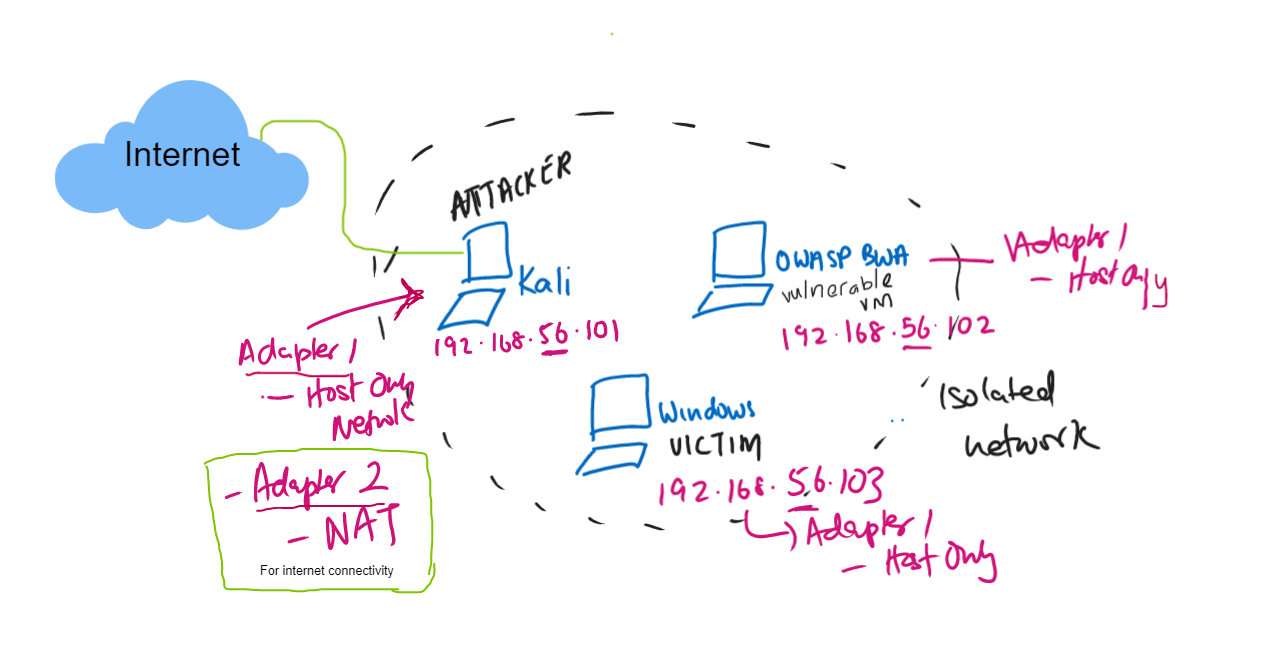 Internet
ATTACKER
Kali
192.168.56.101
Adapter 1
- Host Only
Network
- Adapter 2
- NAT
For internet connectivity
OWASP BWA
vulnerable
VM
192.168.56.102
Adapter 1
- Host Only
Windows
VICTIM
192.168.56.103
Adapter 1
- Host Only
Isolated
network